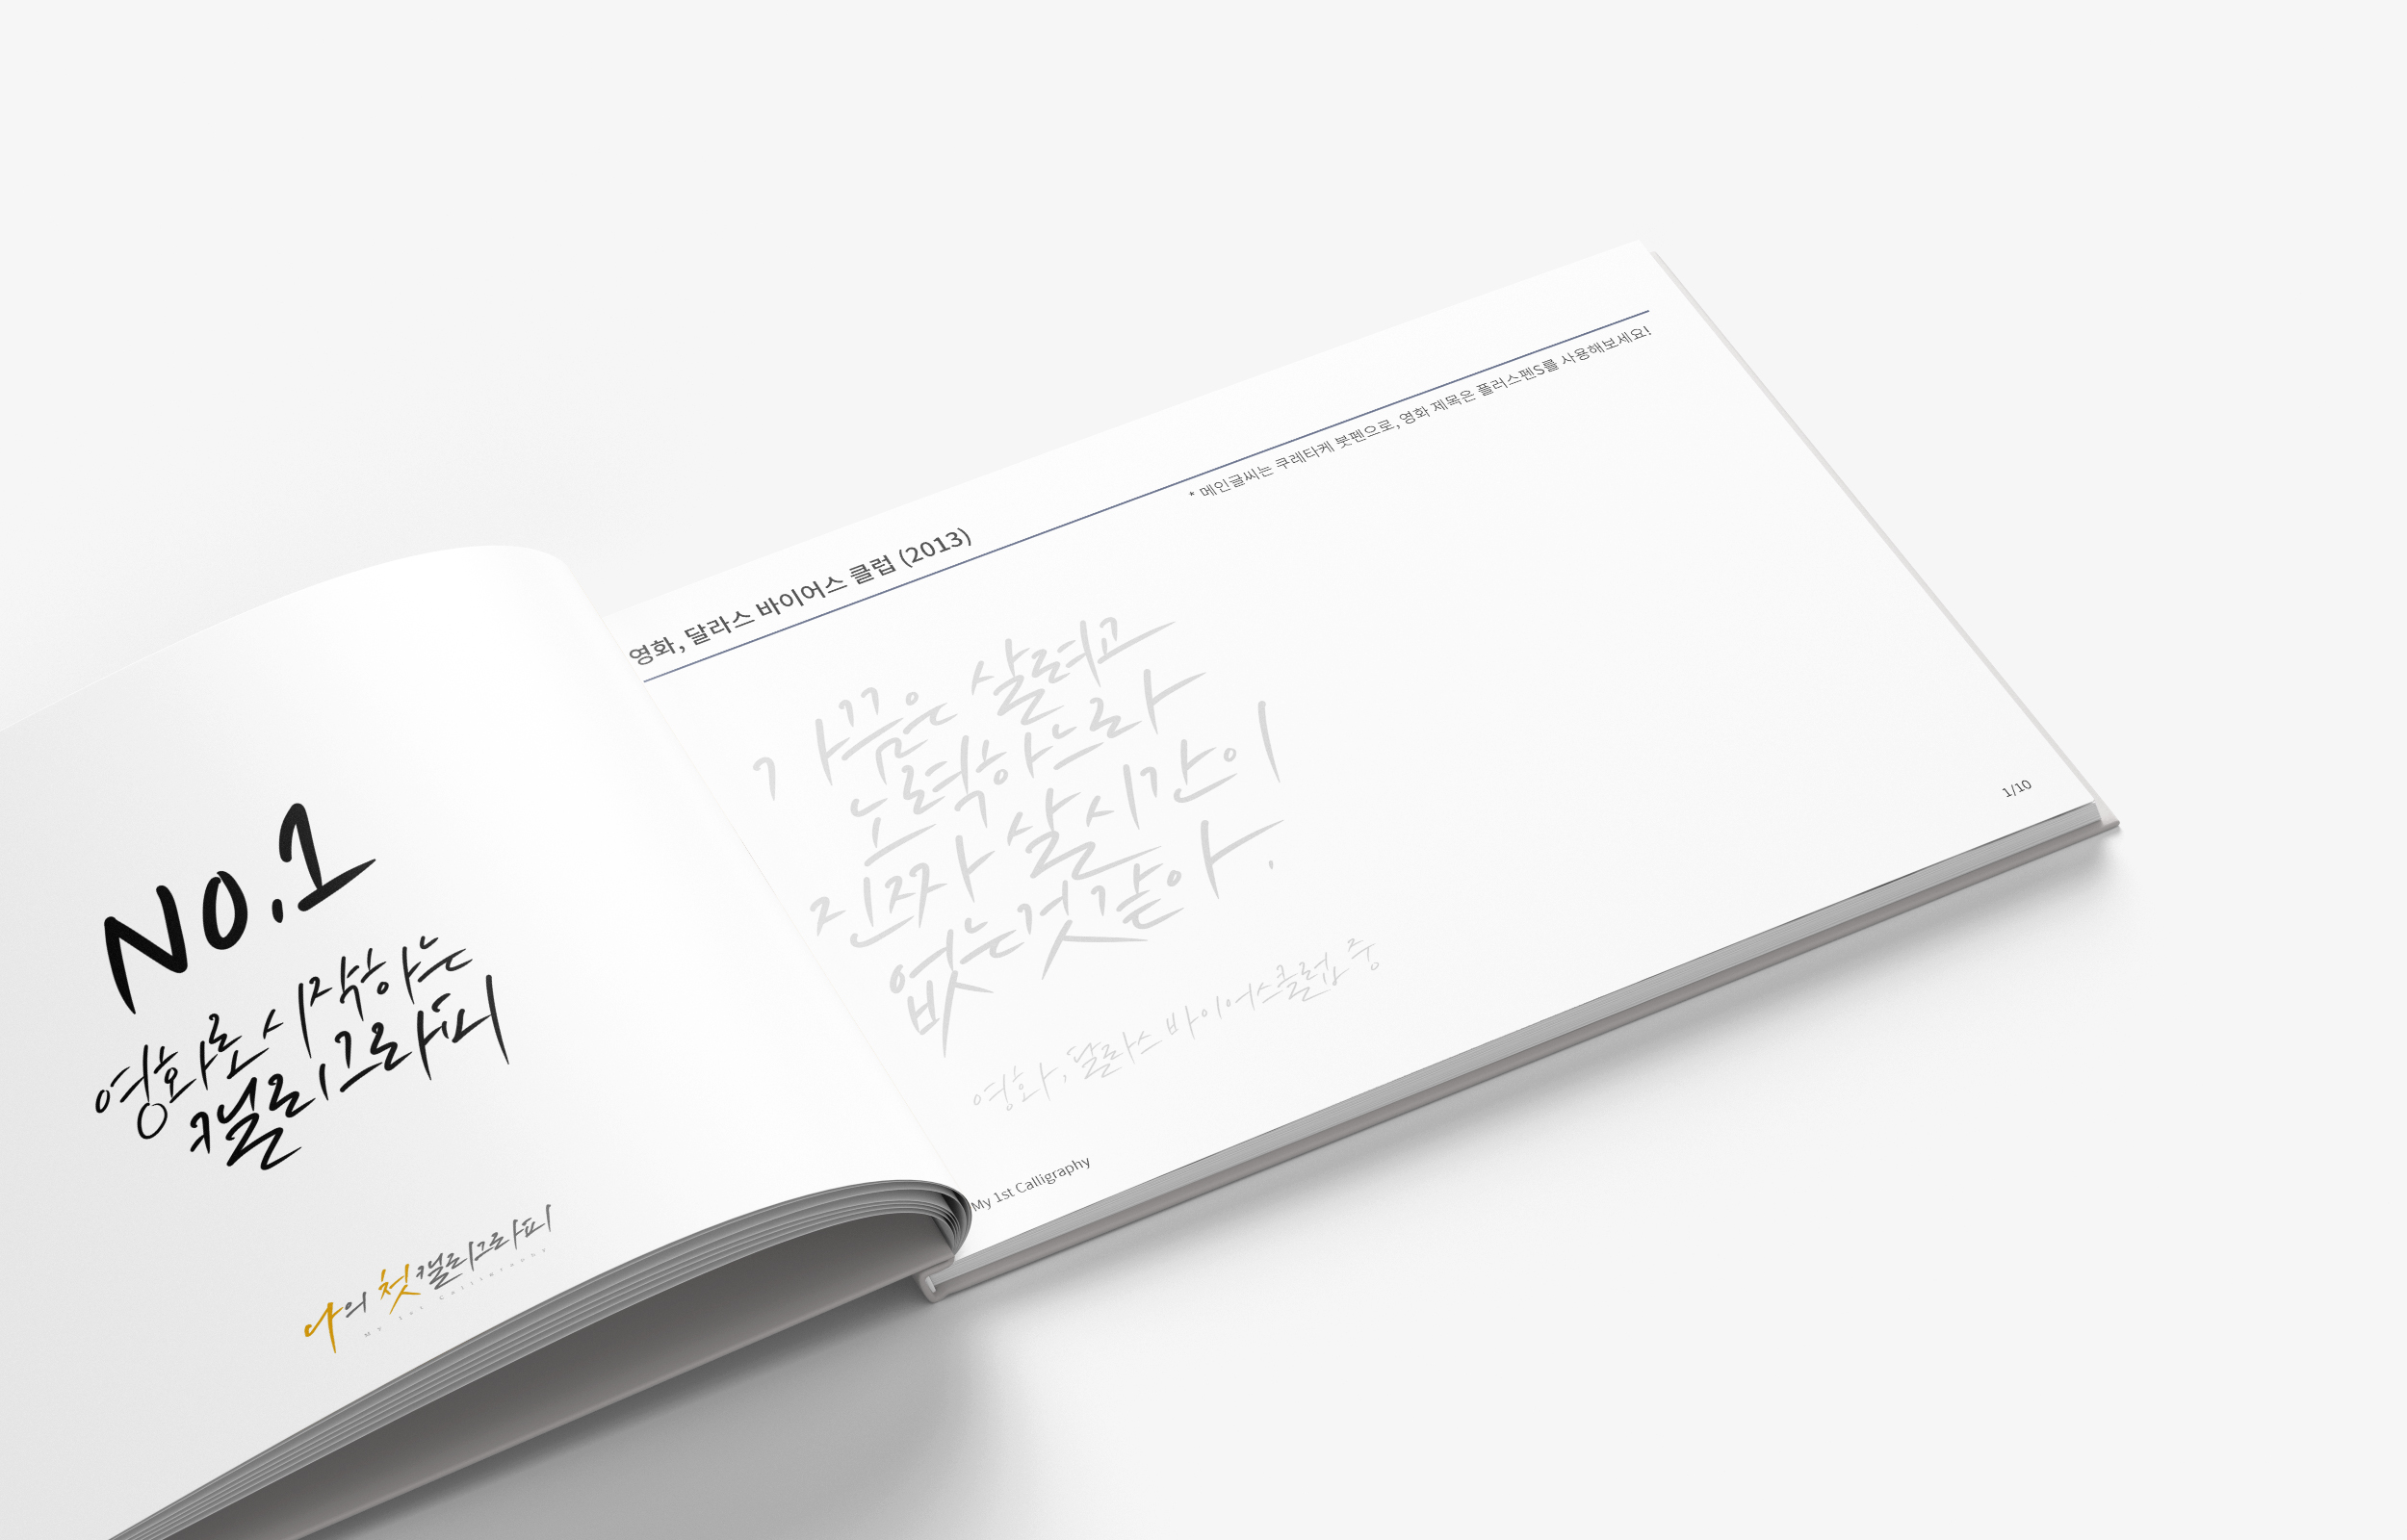 No.1
영화로 시작하는
캘리그라피
나의 첫 캘리그라피
MY 1st Calligraphy
영화, 달라스 바이어스 클럽 (2013)
* 메인글씨는 쿠레타케 붓펜으로, 영화 제목은 플러스펜S를 사용해보세요!
가끔은 살려고
노력하느라
진짜 살 시간이
없는 것 같아.
영화, 달라스 바이어스클럽 중
My 1st Calligraphy
1/10